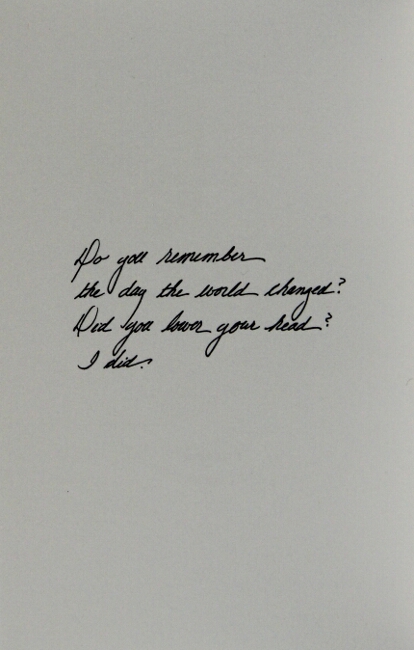 Do you remember
the day the world changed?
Did you lower your head?
I did.